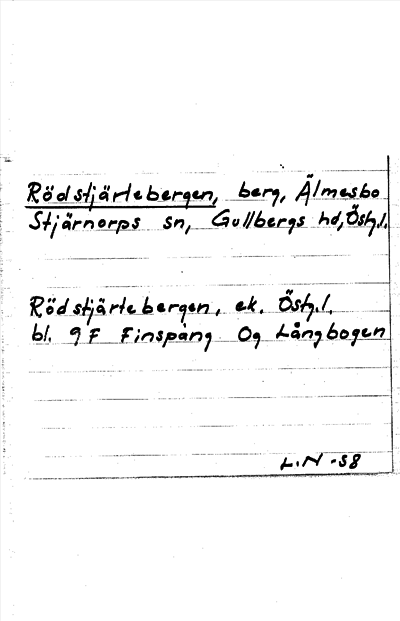 Rödstjärtebergen, berg, Älmesbo
Stjärnorps sn, Gullbergs hd, Östg.l.
Rödstjärtebergen, ek. Östg.l.
bl. 9 F Finspång 0g Långbogen
L.N -58